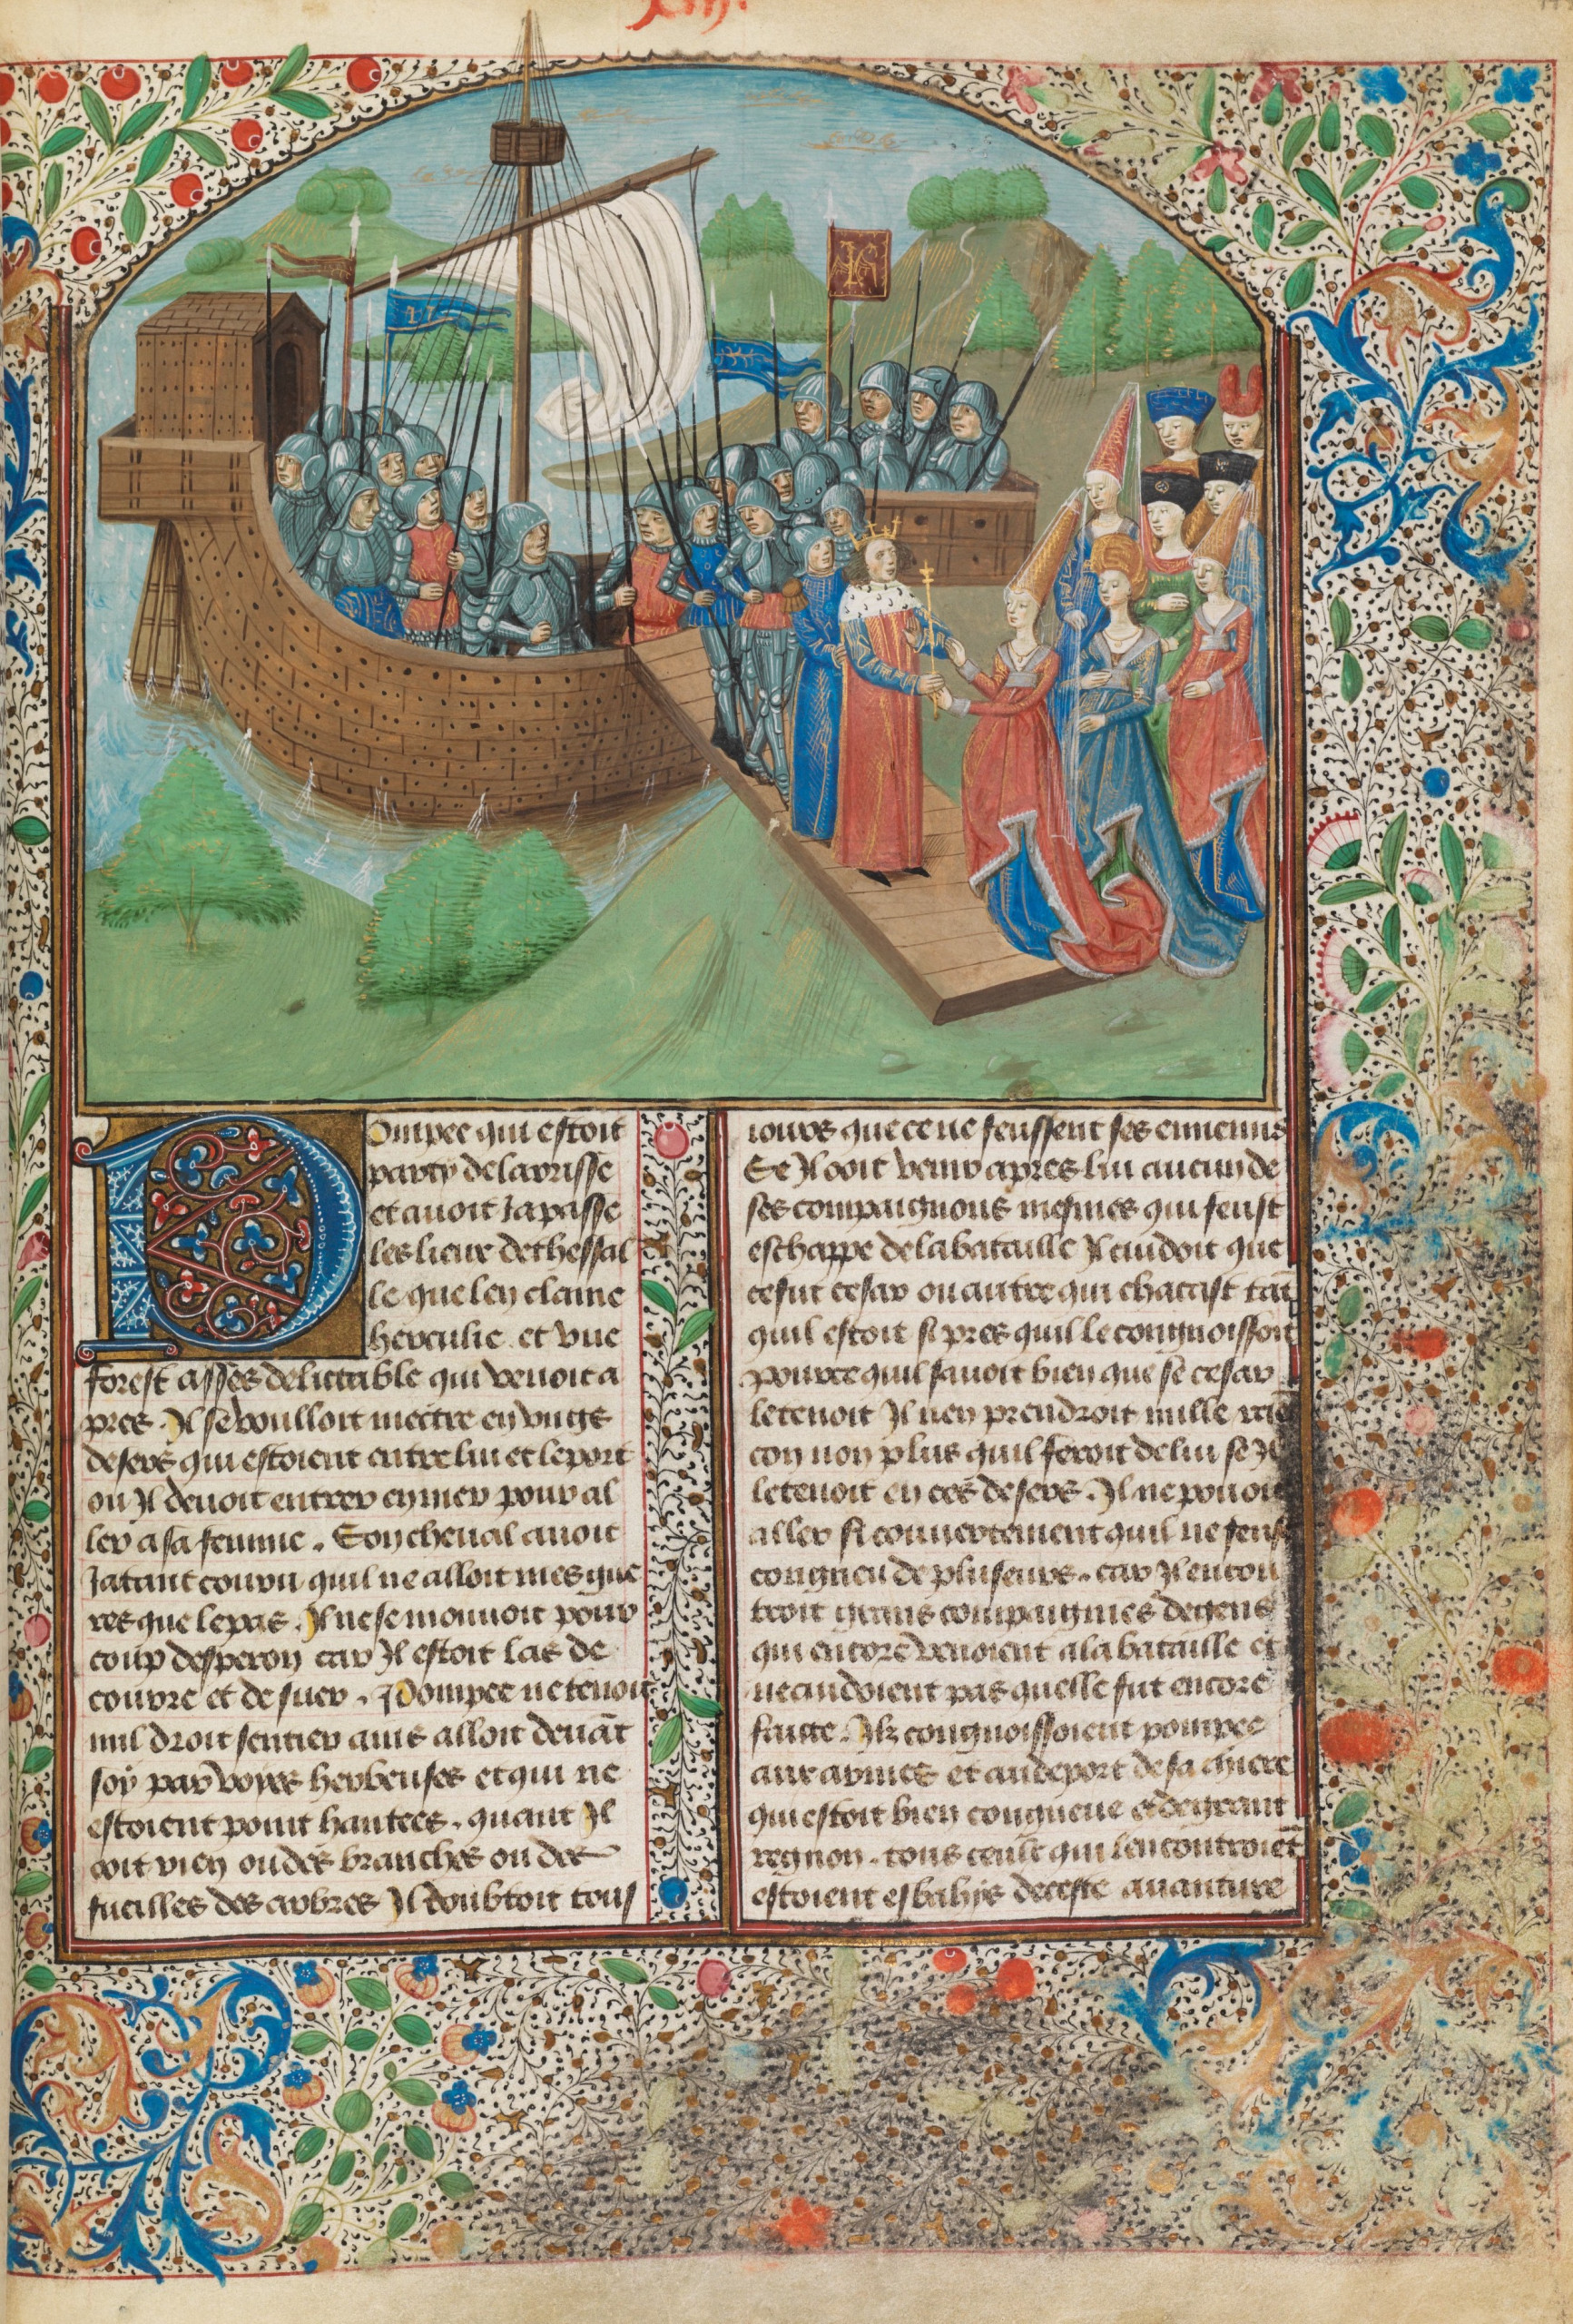 xiii.
Pompee qui estoit
party de larisse
et avoit Ja passe
les lieux de thessal
le que len claime
herculie et une
forest asses delittable qui venoit a
pres. Il se voulloit mectre en unge
desers qui estoient entre lui et le port
ou Il devoit entrer en mer pour al
ler a sa femme. Son cheval avoit
Ja tant couru quil ne alloit mes gue
res que le pas. Il ne se mouvoit pour
coup desperon car Il estoit las de
courre et de suer. Pompee ne tenoit
nul droit sentier ains alloit devãt
soy par voyes herbeuses et qui ne
estoient point hantees. quant Il
ooit rien ou des branches ou des
fueilles des arbres Il doubtoit tous
iours que ce ne feussent ses ennemis
Se Il ooit venir apres lui aucun de
ses compaignons mesmes qui feust
eschappe de la bataille Il cuidoit que
ce fut cesar ou autre qui chacast tãt
quil estoit si pres quil le congnoissoit
pource quil savoit bien que se cesar
le tenoit Il nen prendroit nulle reẽ
con non plus quil feroit de lui se Il
le tenoit en ces desers. Il ne povoit
aller si couvertement quil ne feust
congneu de pluseurs. car Il encon
troit grans compaignies de gens
qui encore venoient a la bataille et
ne cuidoient pas quelle fut encore
faitte. Ilz congnoissoient pompee
aux armes et au deport de sa chiere
qui estoit bien congneue et de grant
regnon. tous ceulx qui lencontroiẽt
estoient esbahis de ceste avanture